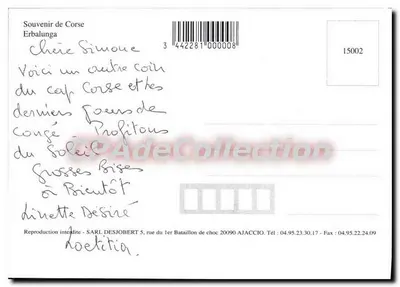 Souvenir de Corse
Erbalunga
3 442281 000008
15002
Chère Simone
Voici un autre coin
du cap Corse et les
derniers jours de
congé Profitons
du Soleil
Grosses Bises
à Bientôt
Linette Désiré
Laetitia
CPAdeCollection
Reproduction interdite - SARL DESJOBERT 5, rue du 1er Bataillon de choc 20090 AJACCIO. Tél : 04.95.23.30.17 - Fax : 04.95.22.24.09